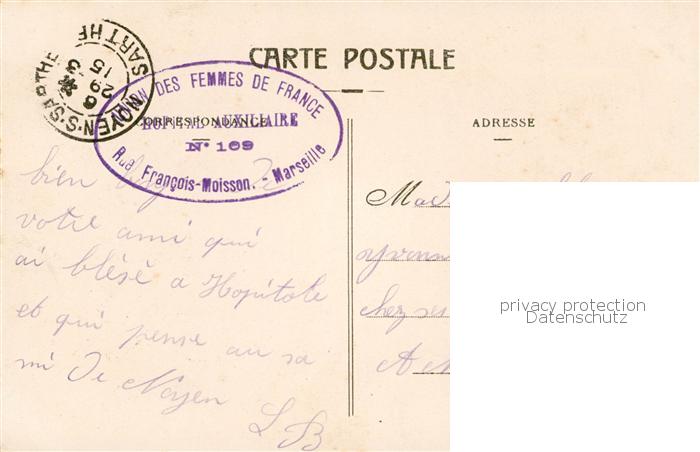 CARTE POSTALE
NOYEN-S-SARTHE
SARTHE
6
29-3
15
UNION DES FEMMES DE FRANCE
HOPITAL AUXILIAIRE
N° 109
Rue François-Moisson. - Marseille
CORRESPONDANCE
ADRESSE
bien
votre ami qui
ai blésé a Hopitale
et qui pense au sa
mi De Noyen
L B
Mad
Yvonn
chez ses
A
privacy protection
Datenschutz